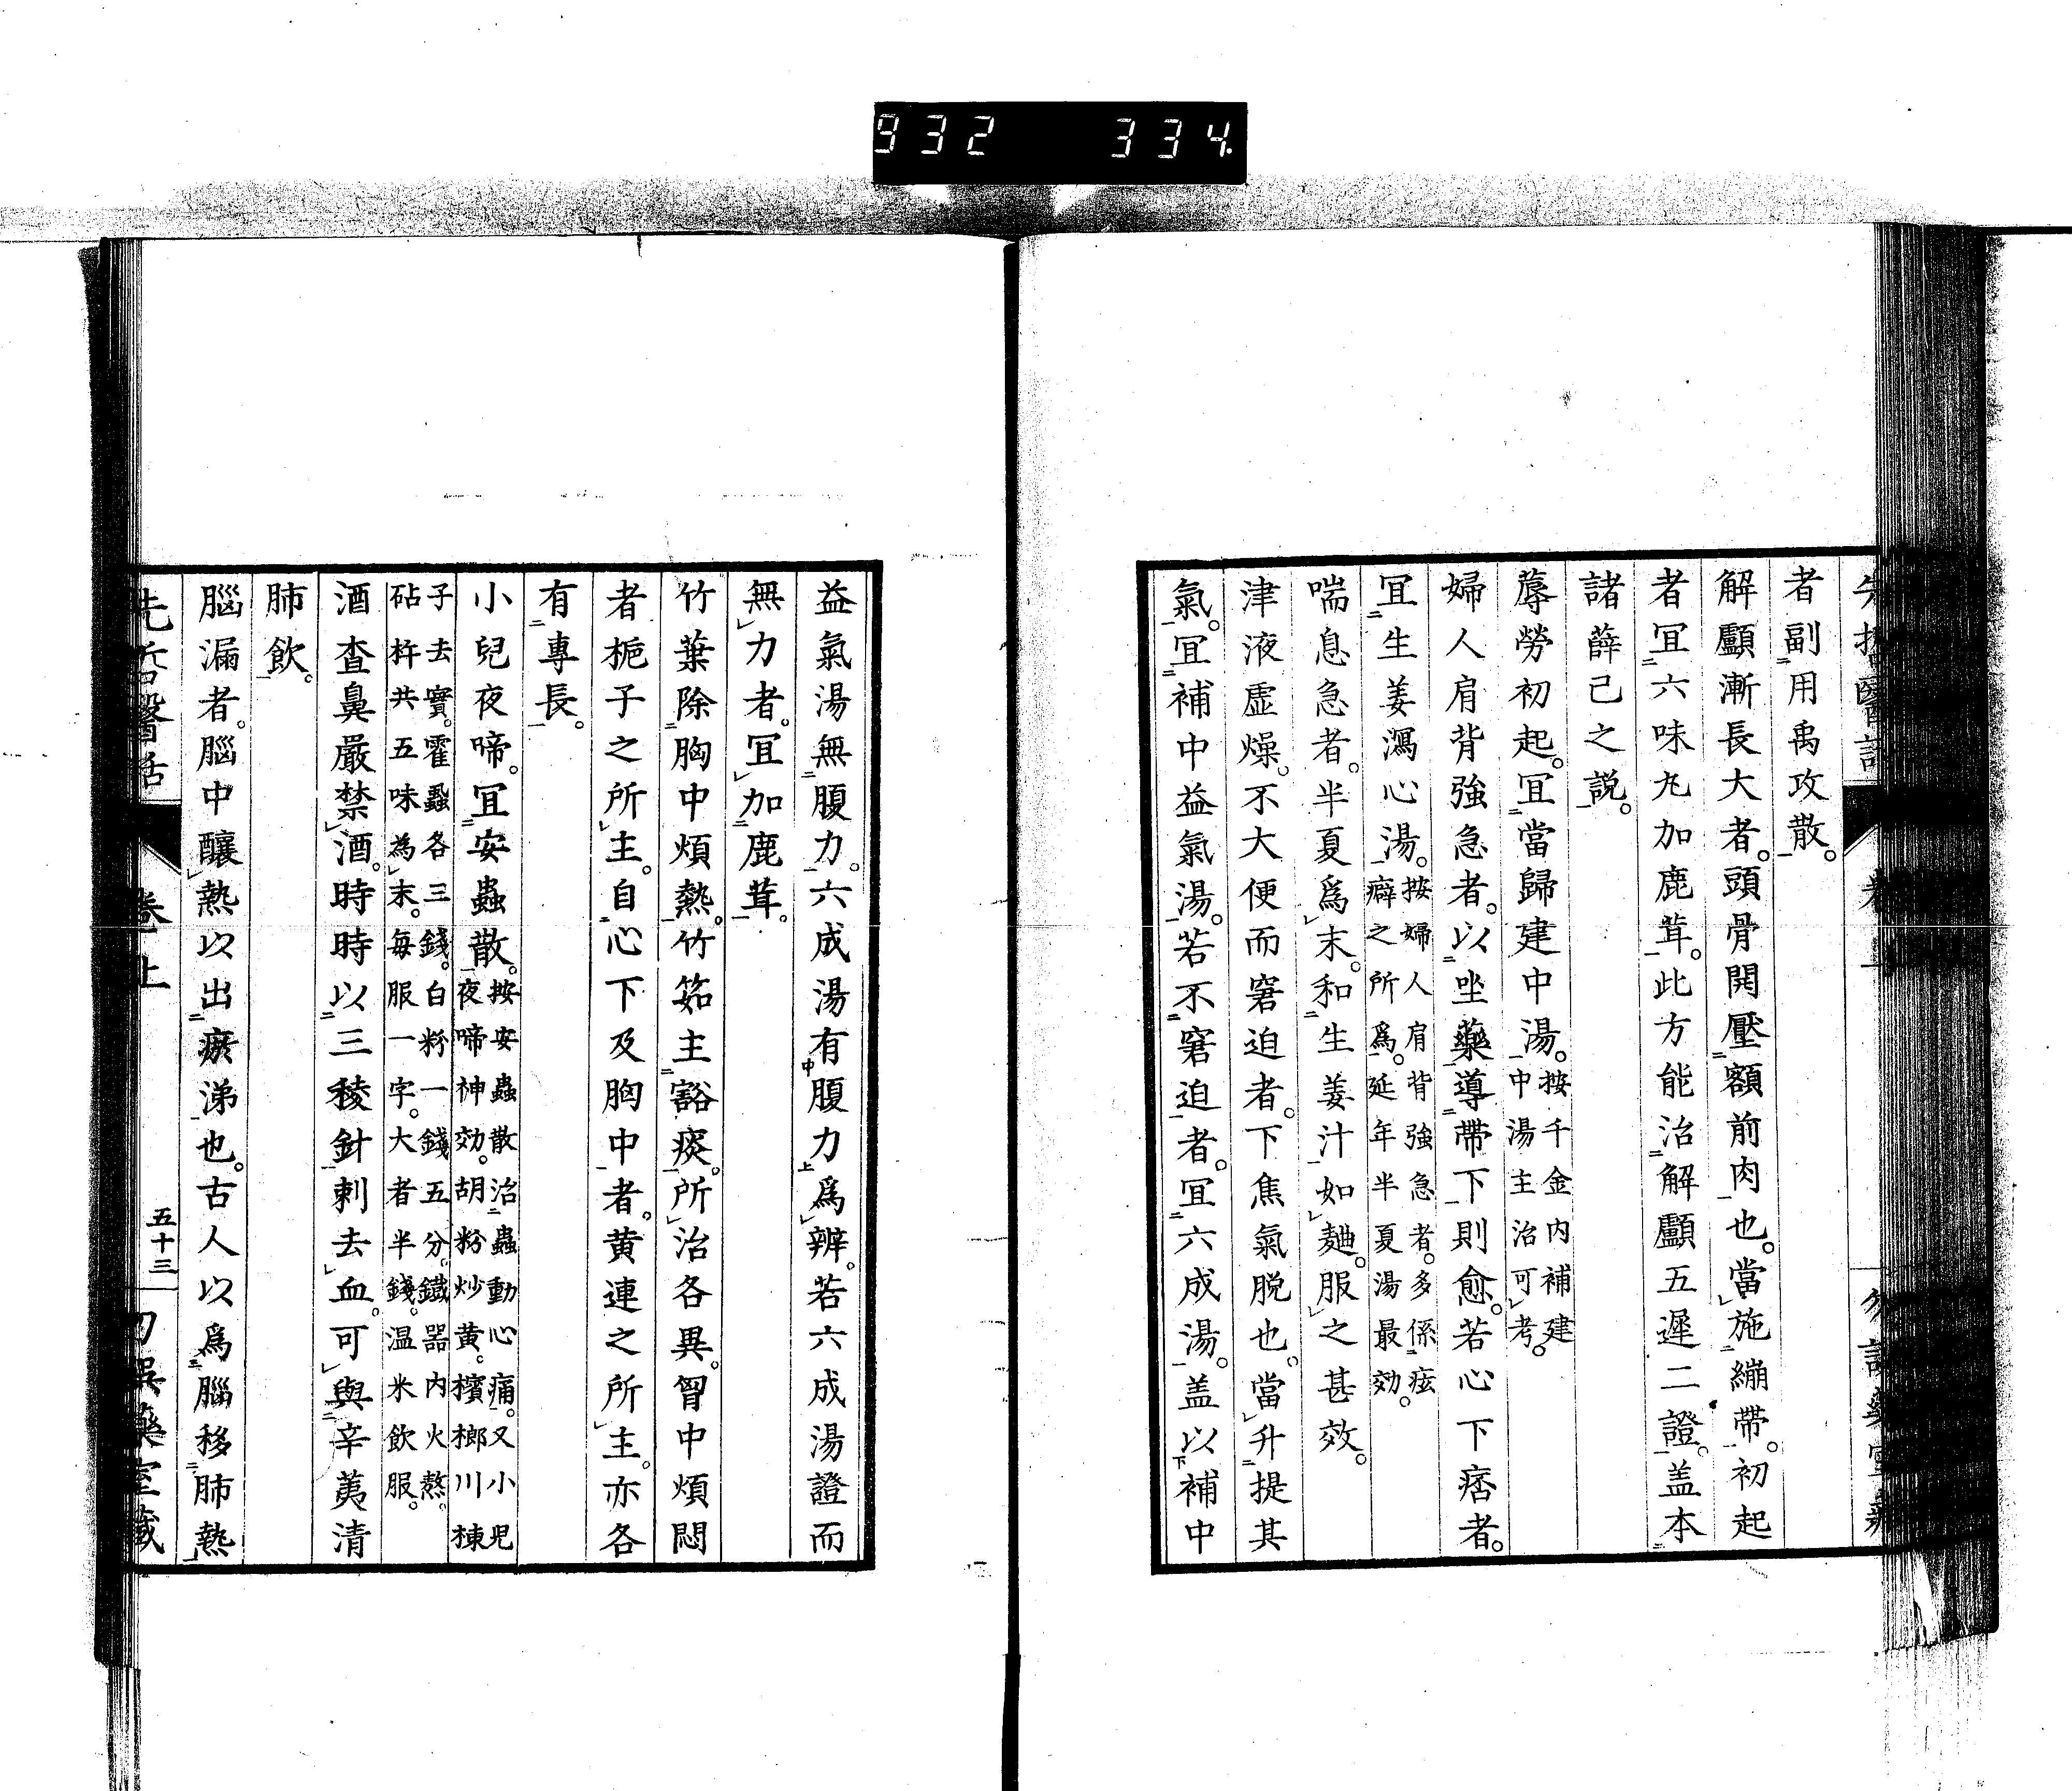 932 334
者副用禹攻散。
解顱漸長大者。頭骨開壓額前肉也。當施繃帶。初起
者冝六味丸加鹿茸。此方能治解顱五遲二證。盖本
諸薛己之説。
蓐勞初起。冝當歸建中湯。按千金内補建
中湯主治可考。
婦人肩背強急者。以坐藥導帶下則愈。若心下痞者。
冝生姜瀉心湯。按婦人肩背強急者。多係痃
癖之所爲。延年半夏湯最効。
喘息急者。半夏爲末。和生姜汁如麯。服之甚效。
津液虛燥。不大便而窘迫者。下焦氣脱也。當升提其
氣。冝補中益氣湯。若不窘迫者。冝六成湯。盖以補中
益氣湯無腹力。六成湯有腹力爲辨。若六成湯證而
無力者。冝加鹿茸。
竹葉除胸中煩熱。竹筎主豁痰。所治各異。胷中煩悶
者梔子之所主。自心下及胸中者。黄連之所主。亦各
有專長。
小兒夜啼。冝安蟲散。按安蟲散治蟲動心痛。又小児
夜啼神効。胡粉炒黄。檳榔川棟
子去實。霍蝨各三錢。白粉一錢五分。鐵器内火熬。
砧杵共五味為末。每服一字。大者半錢。温米飲服。
酒査鼻嚴禁酒。時時以三稜針刺去血。可與辛荑清
肺飲。
腦漏者。腦中釀熱以出瘀涕也。古人以爲腦移肺熱
先哲醫話 卷上 五十三 勿誤藥室藏